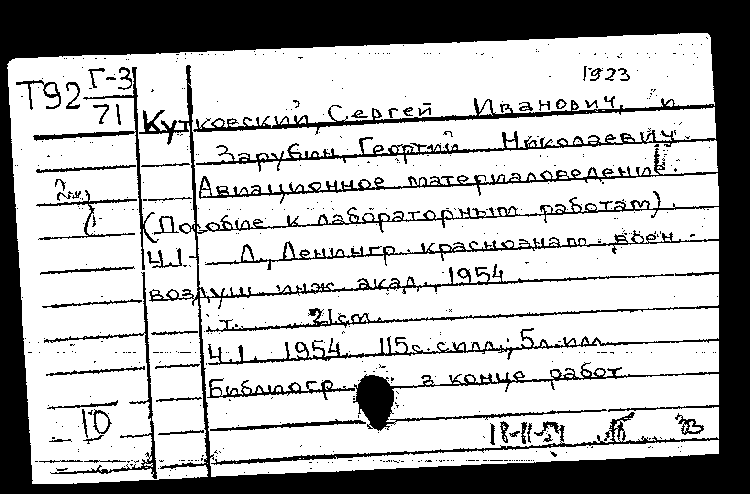 1923
Т92 Г-3
71
Кутковский, Сергей Иванович, и
Зарубин, Георгий Николаевич.
Авиационное материаловедение.
(Пособие к лабораторным работам).
Ч.1- Л., Ленингр. краснознам. воен.-
воздуш. инж. акад., 1954.
т. 21см.
Ч.1. 1954. 115с. с илл.; 5л. илл.
Библиогр. в конце работ.
10
18-11-54